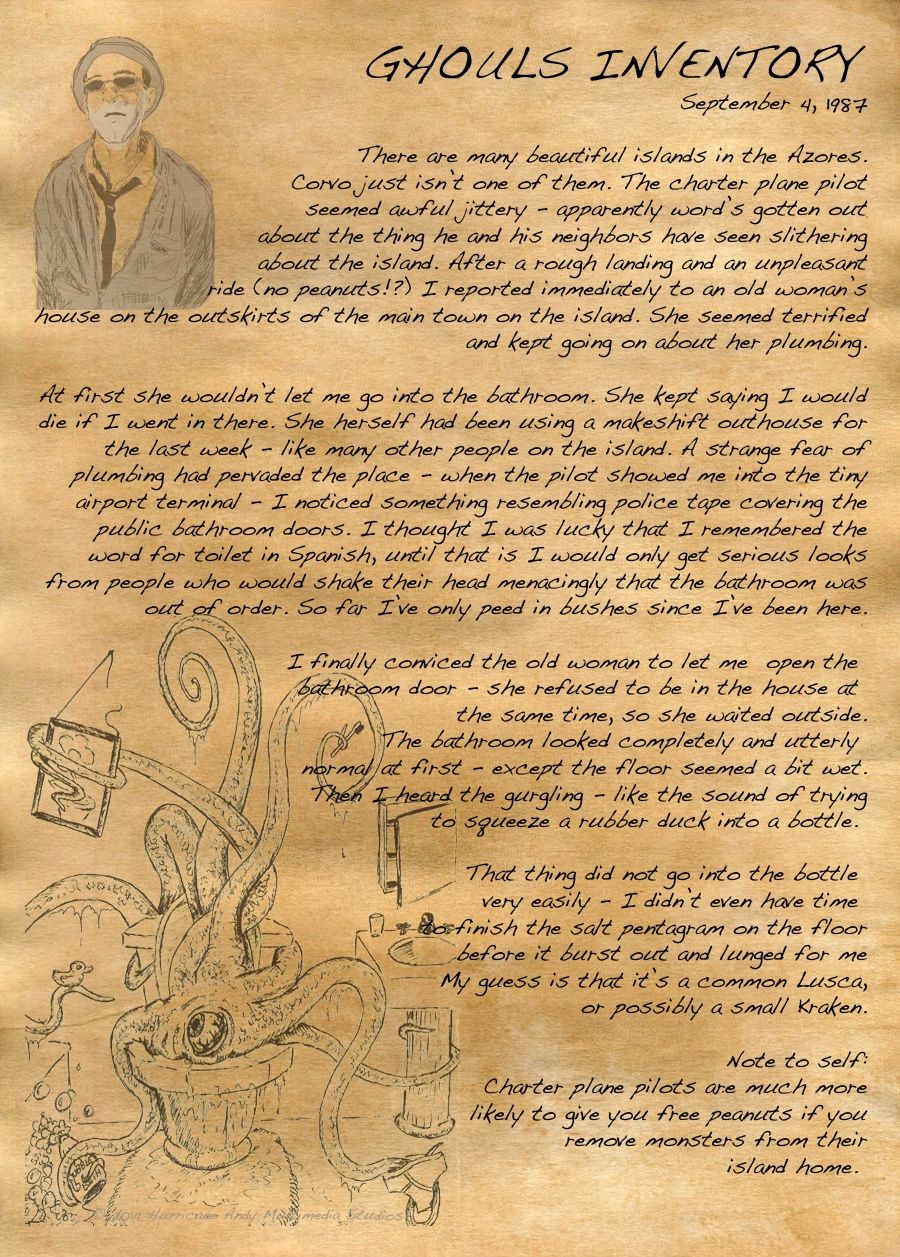 GHOULS INVENTORY
September 4, 1987
There are many beautiful islands in the Azores.
Corvo just isn't one of them. The charter plane pilot
seemed awful jittery - apparently word's gotten out
about the thing he and his neighbors have seen slithering
about the island. After a rough landing and an unpleasant
ride (no peanuts!?) I reported immediately to an old woman's
house on the outskirts of the main town on the island. She seemed terrified
and kept going on about her plumbing.
At first she wouldn't let me go into the bathroom. She kept saying I would
die if I went in there. She herself had been using a makeshift outhouse for
the last week - like many other people on the island. A strange fear of
plumbing had pervaded the place - when the pilot showed me into the tiny
airport terminal - I noticed something resembling police tape covering the
public bathroom doors. I thought I was lucky that I remembered the
word for toilet in Spanish, until that is I would only get serious looks
from people who would shake their head menacingly that the bathroom was
out of order. So far I've only peed in bushes since I've been here.
I finally conviced the old woman to let me open the
bathroom door - she refused to be in the house at
the same time, so she waited outside.
The bathroom looked completely and utterly
normal at first - except the floor seemed a bit wet.
Then I heard the gurgling - like the sound of trying
to squeeze a rubber duck into a bottle.
That thing did not go into the bottle
very easily - I didn't even have time
to finish the salt pentagram on the floor
before it burst out and lunged for me
My guess is that it's a common Lusca,
or possibly a small Kraken.
Note to self:
Charter plane pilots are much more
likely to give you free peanuts if you
remove monsters from their
island home.
Hurricane Andy Multimedia Studios